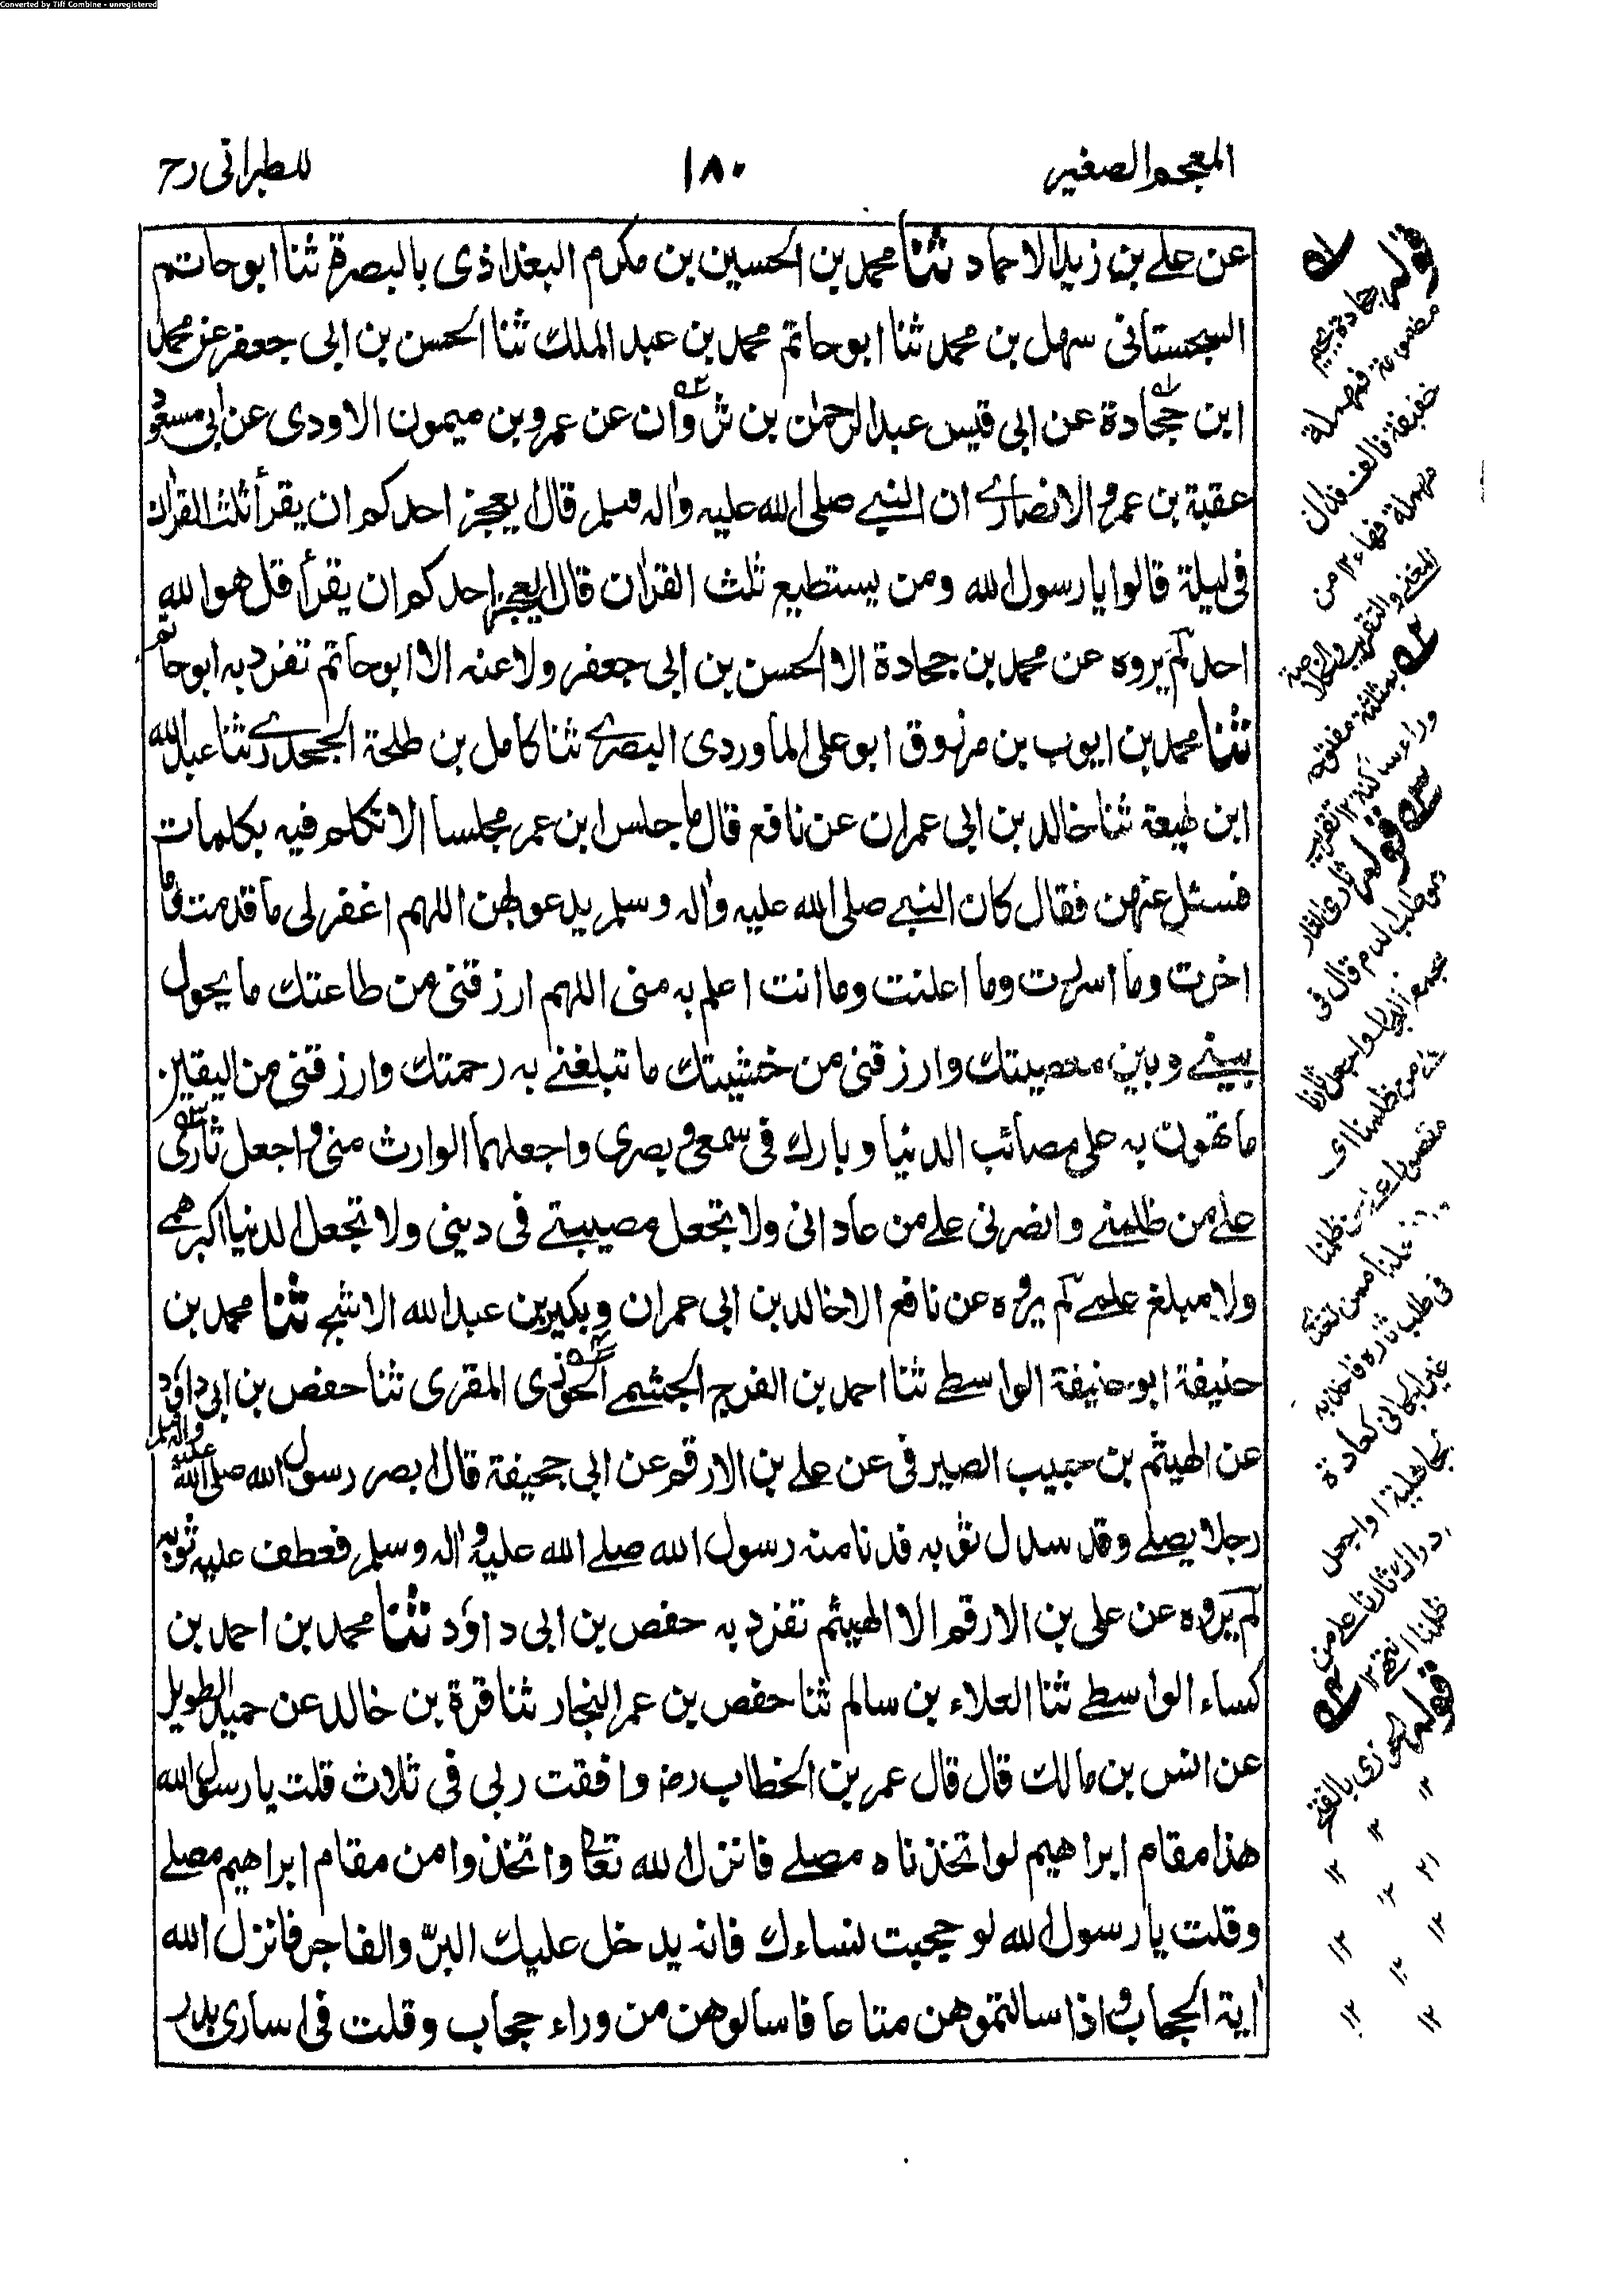 Converted by Tiff Combine - unregistered
المعجم الصغير
١٨٠
للطبرانی رح
عن علے بن زيد الاحماد ثنا محمد بن الحسين بن مكرم البغداذی بالبصرة ثنا ابو حاتم
السجستانی سهل بن محمد ثنا ابو حاتم محمد بن عبد الملك ثنا الحسن بن ابی جعفر عن محمد
ابن جحادة عن ابی قيس عبد الرحمٰن بن ثروان عن عمرو بن ميمون الاودی عن ابی مسعود
عقبة بن عمرو الانصارے ان النبے صلی الله عليه واٰله وسلم قال ايعجز احدكم ان يقرأ ثلث القراٰن
فی ليلة قالوا يا رسول الله ومن يستطيع ثلث القراٰن قال ايعجز احدكم ان يقرأ قل هو الله
احد لم يروه عن محمد بن جحادة الا الحسن بن ابی جعفر ولا عنه الا ابو حاتم تفرد به ابو حاتم
ثنا محمد بن ايوب بن مرزوق ابو علی الماوردی البصرے ثنا كامل بن طلحة الجحدرے ثنا عبد الله
ابن لهيعة ثنا خالد بن ابی عمران عن نافع قال ما جلس ابن عمر مجلسا الا تكلم فيه بكلمات
فسئل عنهن فقال كان النبے صلی الله عليه واٰله وسلم يدعو بهن اللهم اغفر لی ما قدمت وما
اخرت وما اسررت وما اعلنت وما انت اعلم به منی اللهم ارزقنی من طاعتك ما يحول
بينے وبين معصيتك وارزقنی من خشيتك ما تبلغنے به رحمتك وارزقنی من اليقين
ما تهون به علی مصائب الدنيا وبارك فی سمعی وبصری واجعلهما الوارث منی واجعل ثاری
علے من ظلمنے وانصرنی علے من عادانی ولا تجعل مصيبتے فی دينی ولا تجعل الدنيا اكبر همے
ولا مبلغ علمے لم يروه عن نافع الا خالد بن ابی عمران وبكير بن عبد الله الاشج ثنا محمد بن
حنيفة ابو حنيفة الواسطے ثنا احمد بن الفرج الجشمے الحوزی المقری ثنا حفص بن ابی داؤد
عن الهيثم بن حبيب الصيرفی عن علے بن الارقم عن ابی جحيفة قال ابصر رسول الله صلی الله عليه واٰله وسلم
رجلا يصلے وقد سدل ثوبه فدنا منه رسول الله صلے الله عليه واٰله وسلم فعطف عليه ثوبه
لم يروه عن علی بن الارقم الا الهيثم تفرد به حفص بن ابی داؤد ثنا محمد بن احمد بن
كساء الواسطے ثنا العلاء بن سالم ثنا حفص بن عمر النجار ثنا قرة بن خالد عن حميد الطويل
عن انس بن مالك قال قال عمر بن الخطاب رضہ وافقت ربی فی ثلاث قلت يا رسول الله
هذا مقام ابراهيم لو اتخذناه مصلے فانزل الله تعالٰی واتخذوا من مقام ابراهيم مصلے
وقلت يا رسول الله لو حجبت نساءك فانه يدخل عليك البرّ والفاجر فانزل الله
اٰية الحجاب واذا سالتموهن متاعا فاسالوهن من وراء حجاب وقلت فی اساری بدر
قوله جحادة بجيم
مضمومة فمهملة
خفيفة فالف فدال
مهملة فهاء ١٢ من
المغنے والتقريب والخلاصة
بمثلثة مفتوحة
وراء ساكنة ١٢ تقريب
قوله ثاری الثار
هو طلب الدم قال فی
مجمع البحار واجعل ثارنا
علے من ظلمنا ای
مقصورا علے من ظلمنا
فی طلب ثاره فاخذ به
غير الجانی كعادة
الجاهلية او اجعل
ادراك ثارنا علے من
ظلمنا انتهے ١٢
قوله الحوزی بالفتح